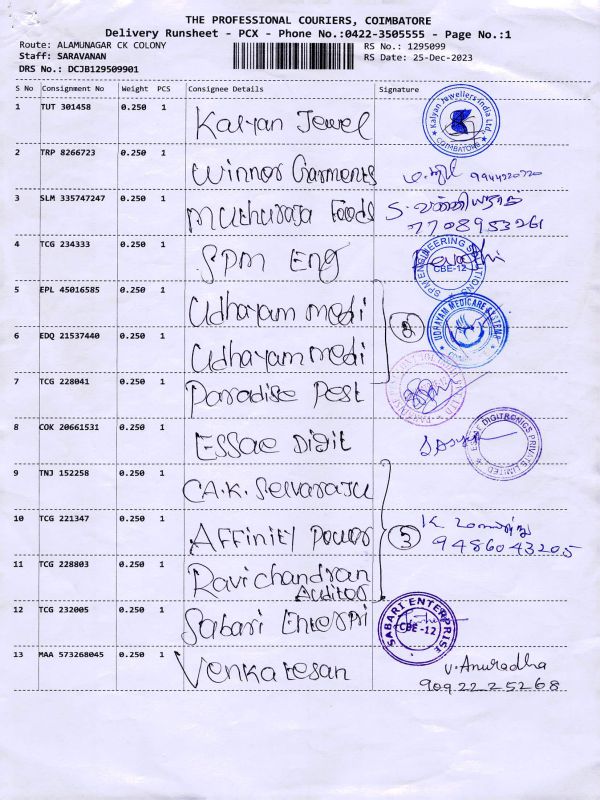 THE PROFESSIONAL COURIERS, COIMBATORE
Delivery Runsheet - PCX - Phone No.:0422-3505555 - Page No.:1
Route: ALAMUNAGAR CK COLONY RS No.: 1295099
Staff: SARAVANAN RS Date: 25-Dec-2023
DRS No.: DCJB129509901
S No Consignment No Weight PCS Consignee Details Signature
1 TUT 301458 0.250 1 Kalyan Jewel Kalyan Jewellers India Ltd. COIMBATORE
2 TRP 8266723 0.250 1 Winner Garments
3 SLM 335747247 0.250 1 Muthuraja Foods S.
7708953261
4 TCG 234333 0.250 1 SPM Eng SPM ENGINEERING CBE-12 Revathi
5 EPL 45016585 0.250 1 Udhayam medi UDHAYAM MEDICARE
6 EDQ 21537440 0.250 1 Udhayam medi
7 TCG 228041 0.250 1 Paradise Pest
8 COK 20661531 0.250 1 ESSae Digit ESSAE DIGITRONICS PRIVATE LIMITED
9 TNJ 152258 0.250 1 CA.K. Selvaraju
10 TCG 221347 0.250 1 Affinity Power K.
9486043205
11 TCG 228803 0.250 1 Ravichandran
Auditor
12 TCG 232005 0.250 1 Sabari Enterpri SABARI ENTERPRISE CBE-12
13 MAA 573268045 0.250 1 Venkatesan V. Anuradha
9092225268